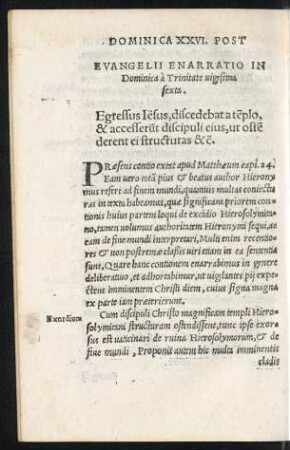 DOMINICA XXVI. POST
EVANGELII ENARRATIO IN
Dominica à Trinitate uigesima
sexta.
Egressus Iēsus, discedebat a tēplo,
& accesserūt discipuli eius, ut ostē
derent ei structuras &c̄.
PRæsens contio extat apud Matthæum capi. 24.
Eam uero etsi pius & beatus author Hierony
mus refert ad finem mundi, quamuis multas coniectu
ras in textu habeamus, quæ significant priorem con
tionis huius partem loqui de excidio Hierosolymita
no, tamen uolumus authoritatem Hieronymi sequi, ac
eam de fine mundi interpretari, Multi enim recentio
res & non postremæ classis uiri etiam in ea sententia
sunt, Quare hanc contionem enarrabimus in genere
deliberatiuo, et adhortabimur, ut uigilantes pij expe
ctent imminentem Christi diem, cuius signa magna
ex parte iam præterierunt.
Exordium
Cum discipuli Christo magnificam templi Hiero
solymitani structuram ostendissent, tunc ipse exor
sus est uaticinari de ruina Hierosolymorum, & de
fine mundi, Proponit autem hic multa imminentis
cladis